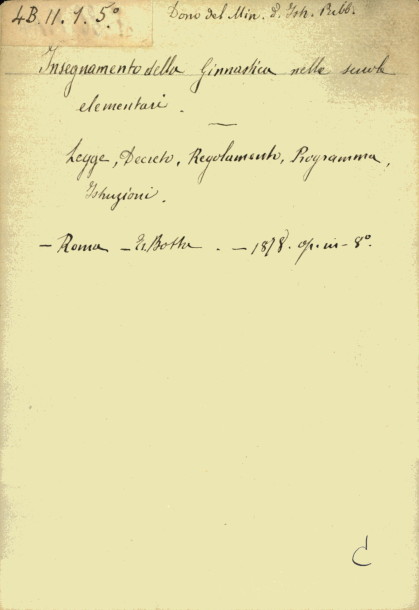 4B. 11. 1. 5.° Dono del Min. d. Ist. Pubb.
Insegnamento della Ginnastica nelle scuole
elementari.
—
Legge, Decreto, Regolamento, Programma,
Istruzioni.
— Roma — E. Botta. — 1878. op. in-8°.
C